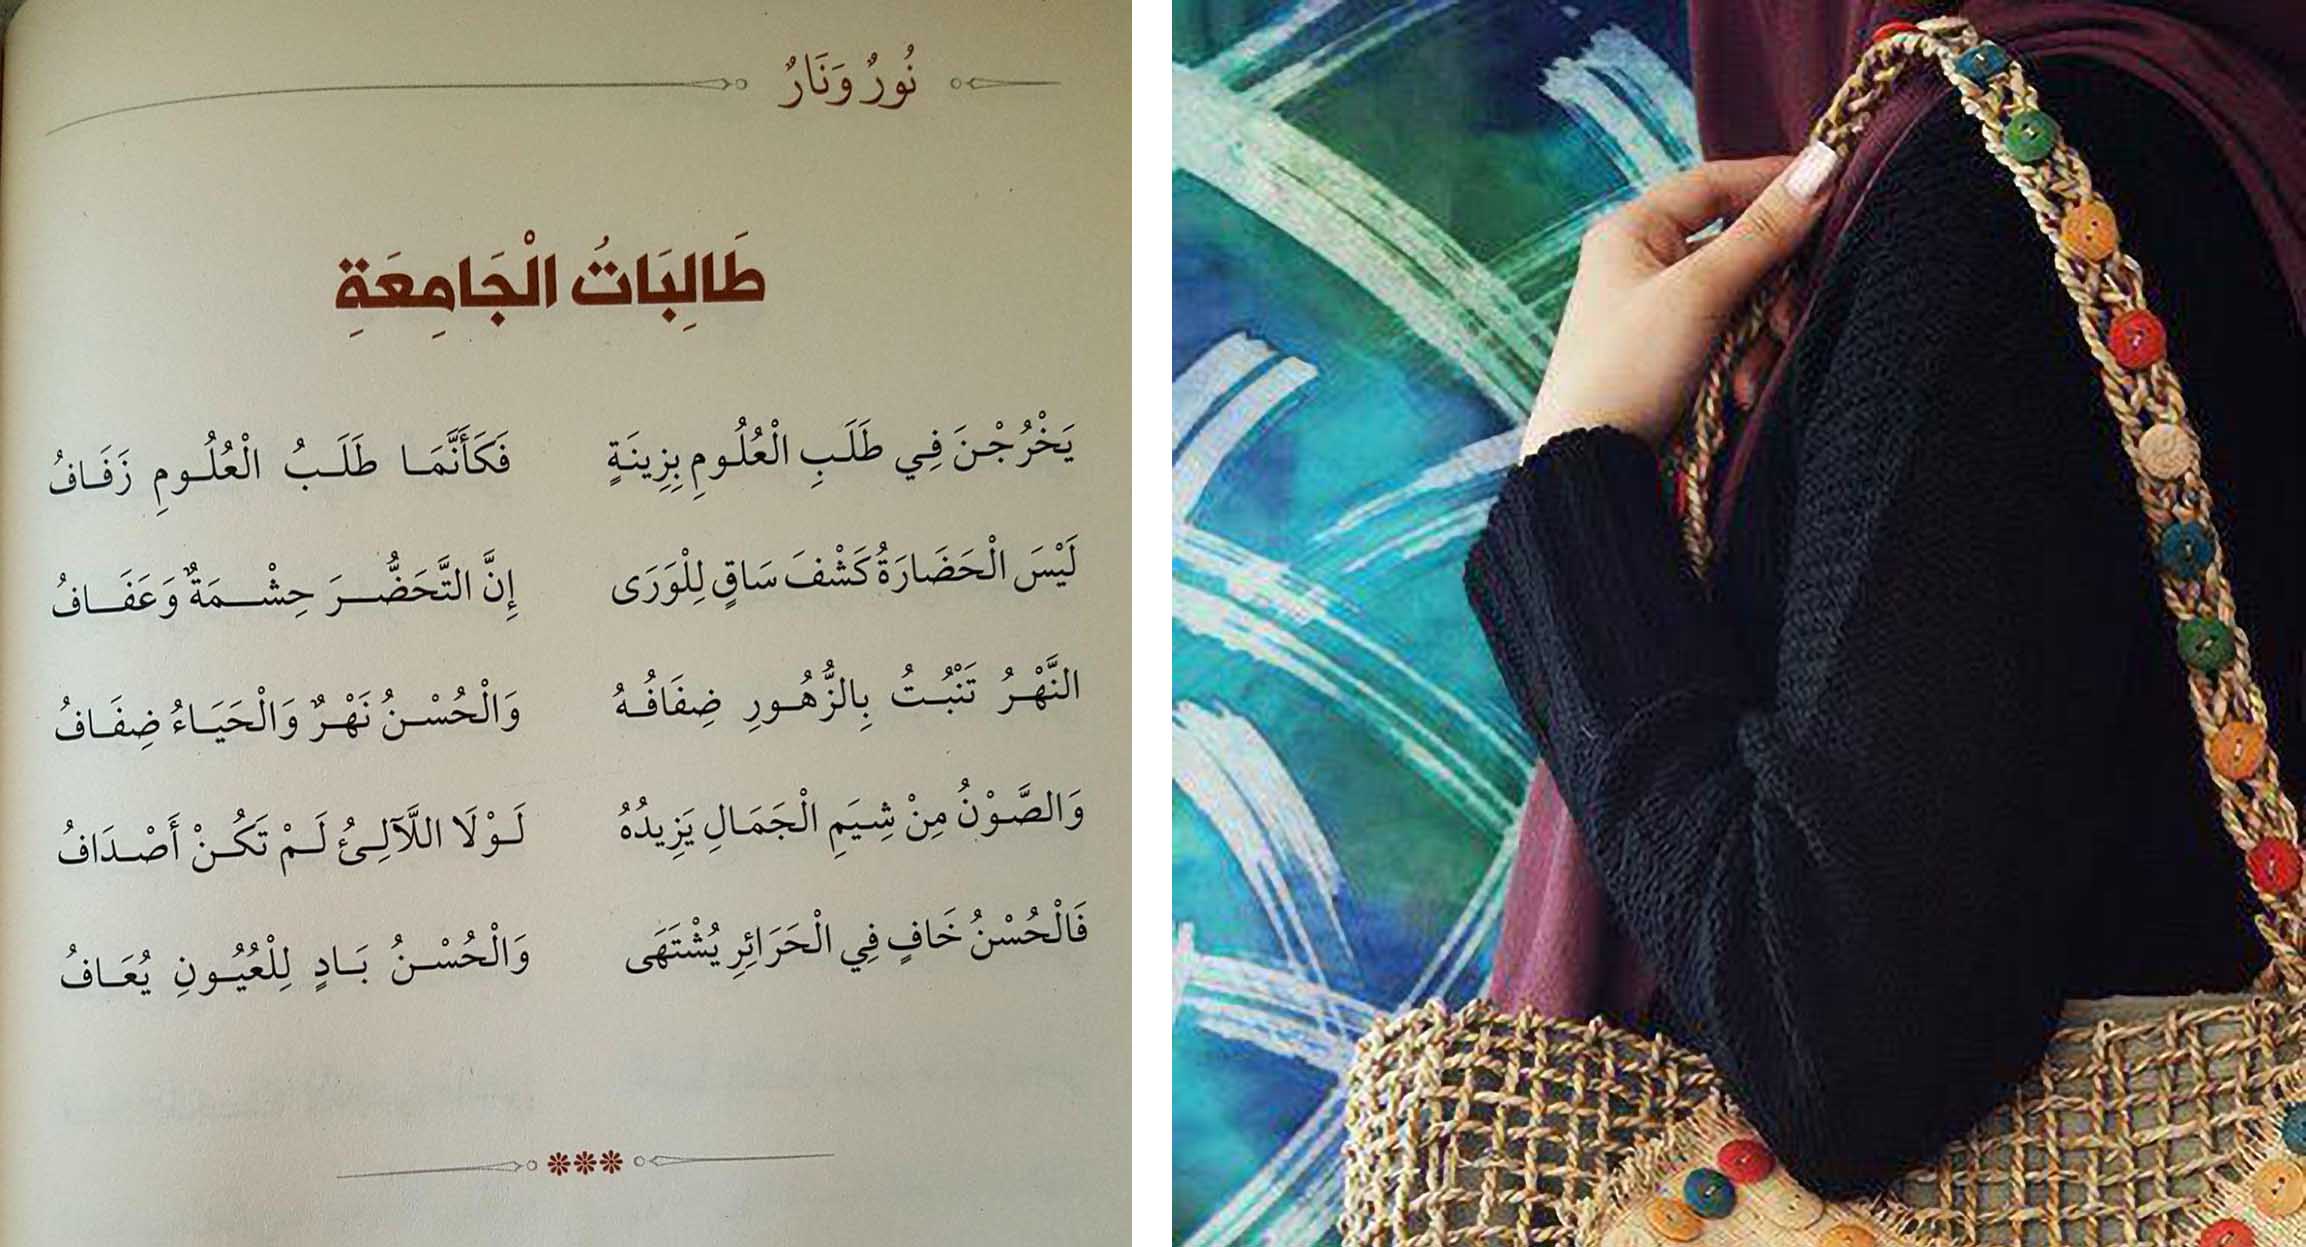 نُورٌ وَنَارٌ
طَالِبَاتُ الْجَامِعَةِ
يَخْرُجْنَ فِي طَلَبِ الْعُلُومِ بِزِينَةٍ فَكَأَنَّمَا طَلَبُ الْعُلُومِ زَفَافُ
لَيْسَ الْحَضَارَةُ كَشْفَ سَاقٍ لِلْوَرَى إِنَّ التَّحَضُّرَ حِشْمَةٌ وَعَفَافُ
النَّهْرُ تَنْبُتُ بِالزُّهُورِ ضِفَافُهُ وَالْحُسْنُ نَهْرٌ وَالْحَيَاءُ ضِفَافُ
وَالصَّوْنُ مِنْ شِيَمِ الْجَمَالِ يَزِيدُهُ لَوْلَا اللَّآلِئُ لَمْ تَكُنْ أَصْدَافُ
فَالْحُسْنُ خَافٍ فِي الْحَرَائِرِ يُشْتَهَى وَالْحُسْنُ بَادٍ لِلْعُيُونِ يُعَافُ